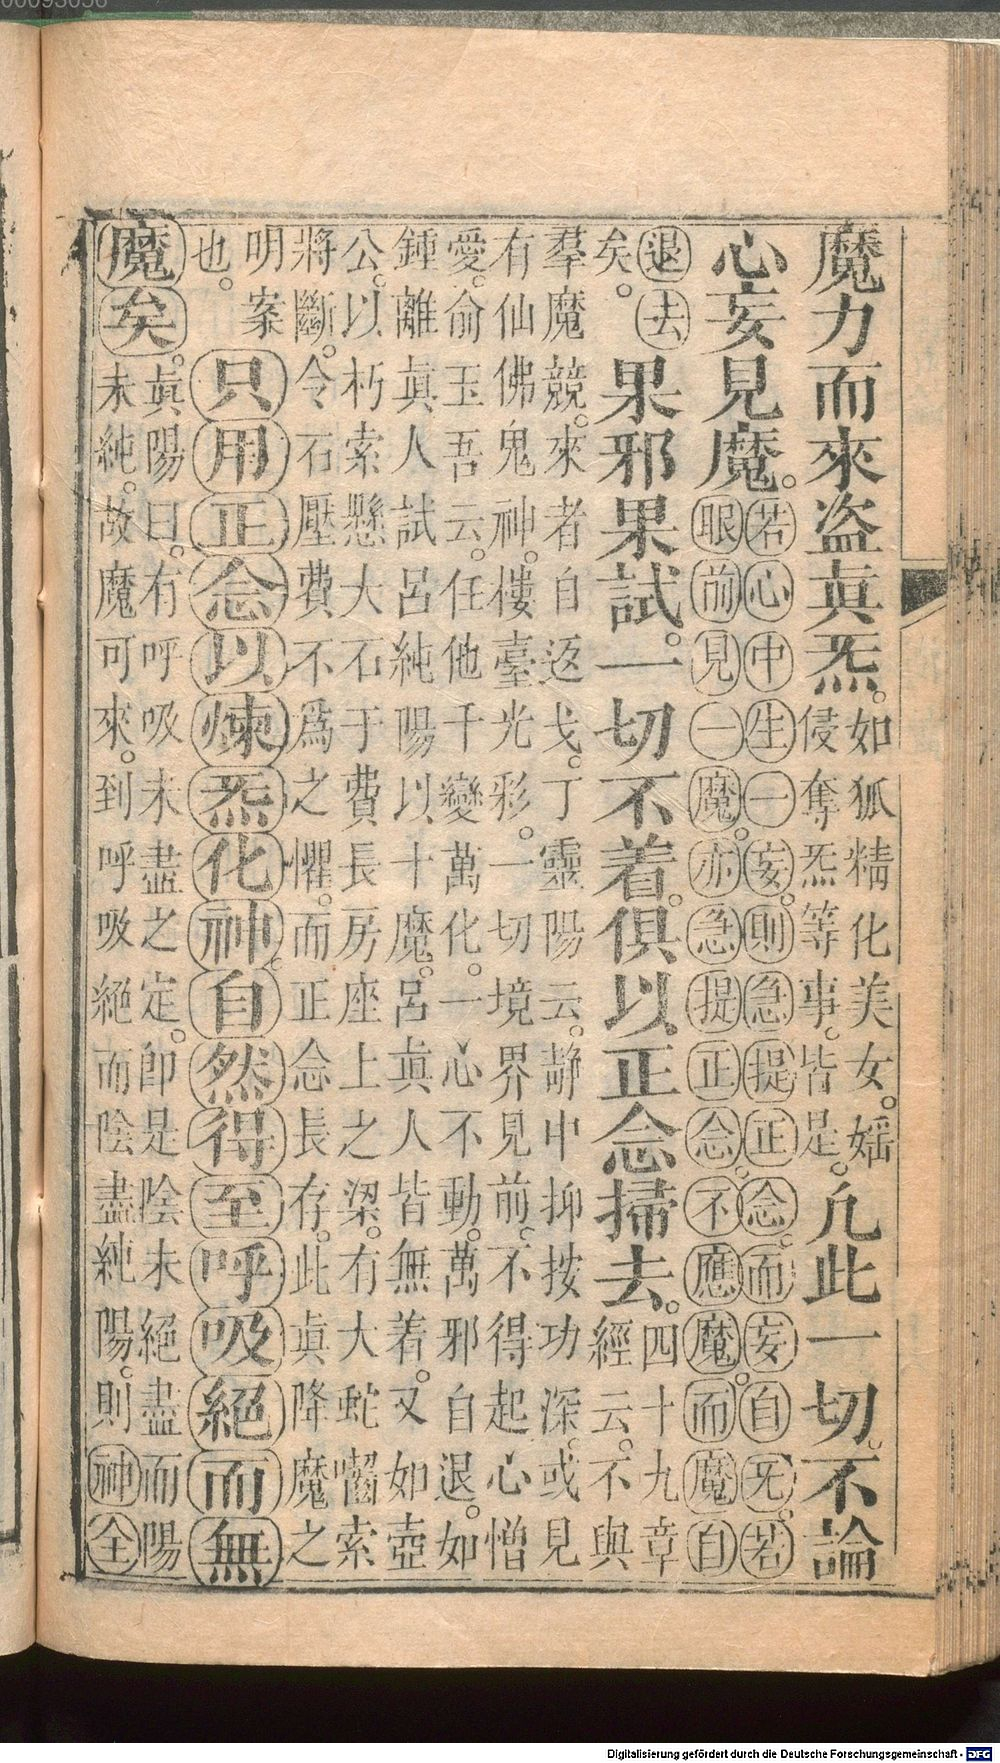 00093056
魔力而來盜眞炁。如狐精化美女。婬
侵奪炁等事。皆是。凢此一切。不論
心妄見魔。若心中生一妄。則急提正念。而妄自死。若
眼前見一魔。亦急提正念。不應魔。而魔自
退去
矣。果邪果試。一切不着。俱以正念掃去。四十九章
經云。不與
羣魔競。來者自返戈。丁靈陽云。靜中抑按功深。或見
有仙佛鬼神。樓臺光彩。一切境界見前。不得起心憎
愛。俞玉吾云。任他千變萬化。一心不動。萬邪自退。如
鍾離眞人試呂純陽以十魔。呂眞人皆無着。又如壺
公。以朽索懸大石于費長房座上之梁。有大蛇嚙索
將斷。令石壓費不爲之懼。而正念長存。此眞降魔之
明案
也。只用正念以煉炁化神。自然得至呼吸絕而無
魔矣。眞陽曰。有呼吸未盡之定。卽是陰未絕盡而陽
未純。故魔可來。到呼吸絕而陰盡純陽。則神全
Digitalisierung gefördert durch die Deutsche Forschungsgemeinschaft - DFG